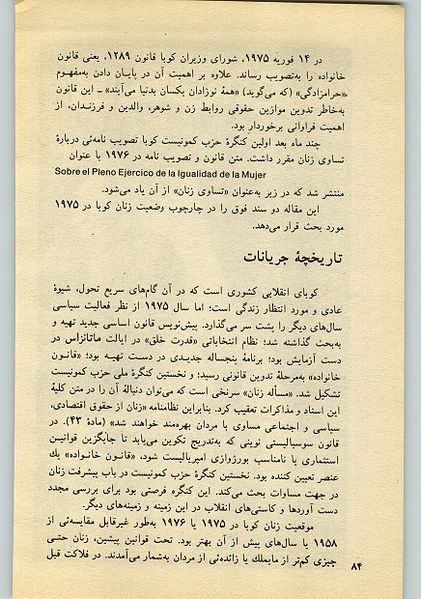 در ۱۴ فوریه ۱۹۷۵، شورای وزیران کوبا قانون ۱۲۸۹، یعنی قانون
خانواده را به‌تصویب رساند. علاوه بر اهمیت آن در پایان دادن به‌مفهوم
«حرامزادگی» (که می‌گوید) «همهٔ نوزادان یکسان بدنیا می‌آیند» ـ این قانون
به‌خاطر تدوین موازین حقوقی روابط زن و شوهر، والدین و فرزندان، از
اهمیت فراوانی برخوردار بود.
چند ماه بعد اولین کنگرهٔ حزب کمونیست کوبا تصویب نامه‌ئی دربارهٔ
تساوی زنان مقرر داشت. متن قانون و تصویب نامه در ۱۹۷۶ با عنوان
Sobre el Pleno Ejercico de la Igualidad de la Mujer
منتشر شد که در زیر به‌عنوان «تساوی زنان» از آن یاد می‌شود.
این مقاله دو سند فوق را در چارچوب وضعیت زنان کوبا در ۱۹۷۵
مورد بحث قرار می‌دهد.
تاریخچهٔ جریانات
کوبای انقلابی کشوری است که در آن گام‌های سریع تحول، شیوهٔ
عادی و مورد انتظار زندگی است؛ اما سال ۱۹۷۵ از نظر فعالیت سیاسی
سال‌های دیگر را پشت سر می‌گذارد. پیش‌نویس قانون اساسی جدید تهیه و
به‌بحث گذاشته شد؛ نظام انتخاباتی «قدرت خلق» در ایالت ماتانزاس در
دست آزمایش بود؛ برنامهٔ پنجساله جدیدی در دست تهیه بود؛ «قانون
خانواده» به‌مرحلهٔ تدوین قانونی رسید؛ و نخستین کنگرهٔ ملی حزب کمونیست
تشکیل شد. «مسأله زنان» سرنخی است که می‌توان دنبالهٔ آن را در متن کلیهٔ
این اسناد و مذاکرات تعقیب کرد. بنابراین نظامنامه «زنان از حقوق اقتصادی،
سیاسی و اجتماعی مساوی با مردان بهره‌مند خواهند شد» (مادهٔ ۴۳). در
قانون سوسیالیستی نوینی که به‌تدریج تکوین می‌یابد تا جایگزین قوانین
استثماری یا نامناسب بورژوازی امپریالیست شود، «قانون خانواده» یك
عنصر تعیین کننده بود. نخستین کنگرهٔ حزب کمونیست در باب پیشرفت زنان
در جهت مساوات بحث می‌کند. این کنگره فرصتی بود برای بررسی مجدد
دست آوردها و کاستی‌های انقلاب در این زمینه و زمینه‌های دیگر.
موقعیت زنان کوبا در ۱۹۷۵ یا ۱۹۷۶ به‌طور غیرقابل مقایسه‌ئی از
۱۹۵۸ یا سال‌های پیش از آن بهتر بود. تحت قوانین پیشین، زنان حتی
چیزی کم‌تر از مایملك یا زائده‌ئی از مردان به‌شمار می‌آمدند. در فلاکت قبل
۸۴